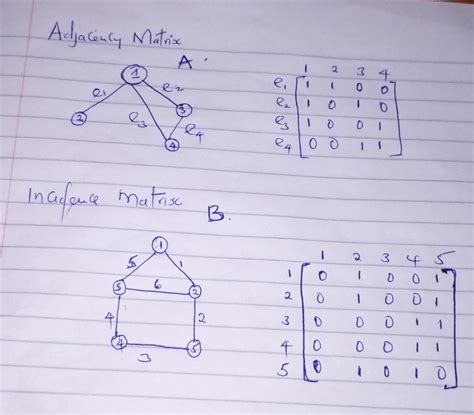 Adjacency Matrix
A.
1
e1 e2
2 3
e3 e4
4
1 2 3 4
e1 1 1 0 0
e2 1 0 1 0
e3 1 0 0 1
e4 0 0 1 1
Incidence Matrix
B.
1
5 1
5 6 2
4 2
4 5
3
1 2 3 4 5
1 0 1 0 0 1
2 0 1 0 0 1
3 0 0 0 1 1
4 0 0 0 1 1
5 0 1 0 1 0